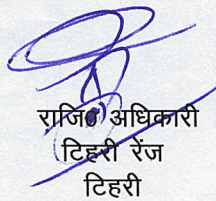 राजि० अधिकारी
टिहरी रेंज
टिहरी